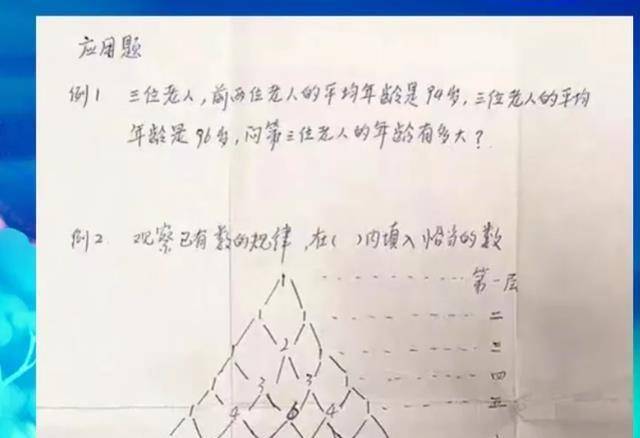 应用题
例1 三位老人,前两位老人的平均年龄是94岁,三位老人的平均
年龄是96岁,问第三位老人的年龄有多大?
例2 观察已有数的规律,在( )内填入恰当的数
1 第一层
1 1 二
1 2 1 三
1 3 3 1 四
1 4 6 4 1 五